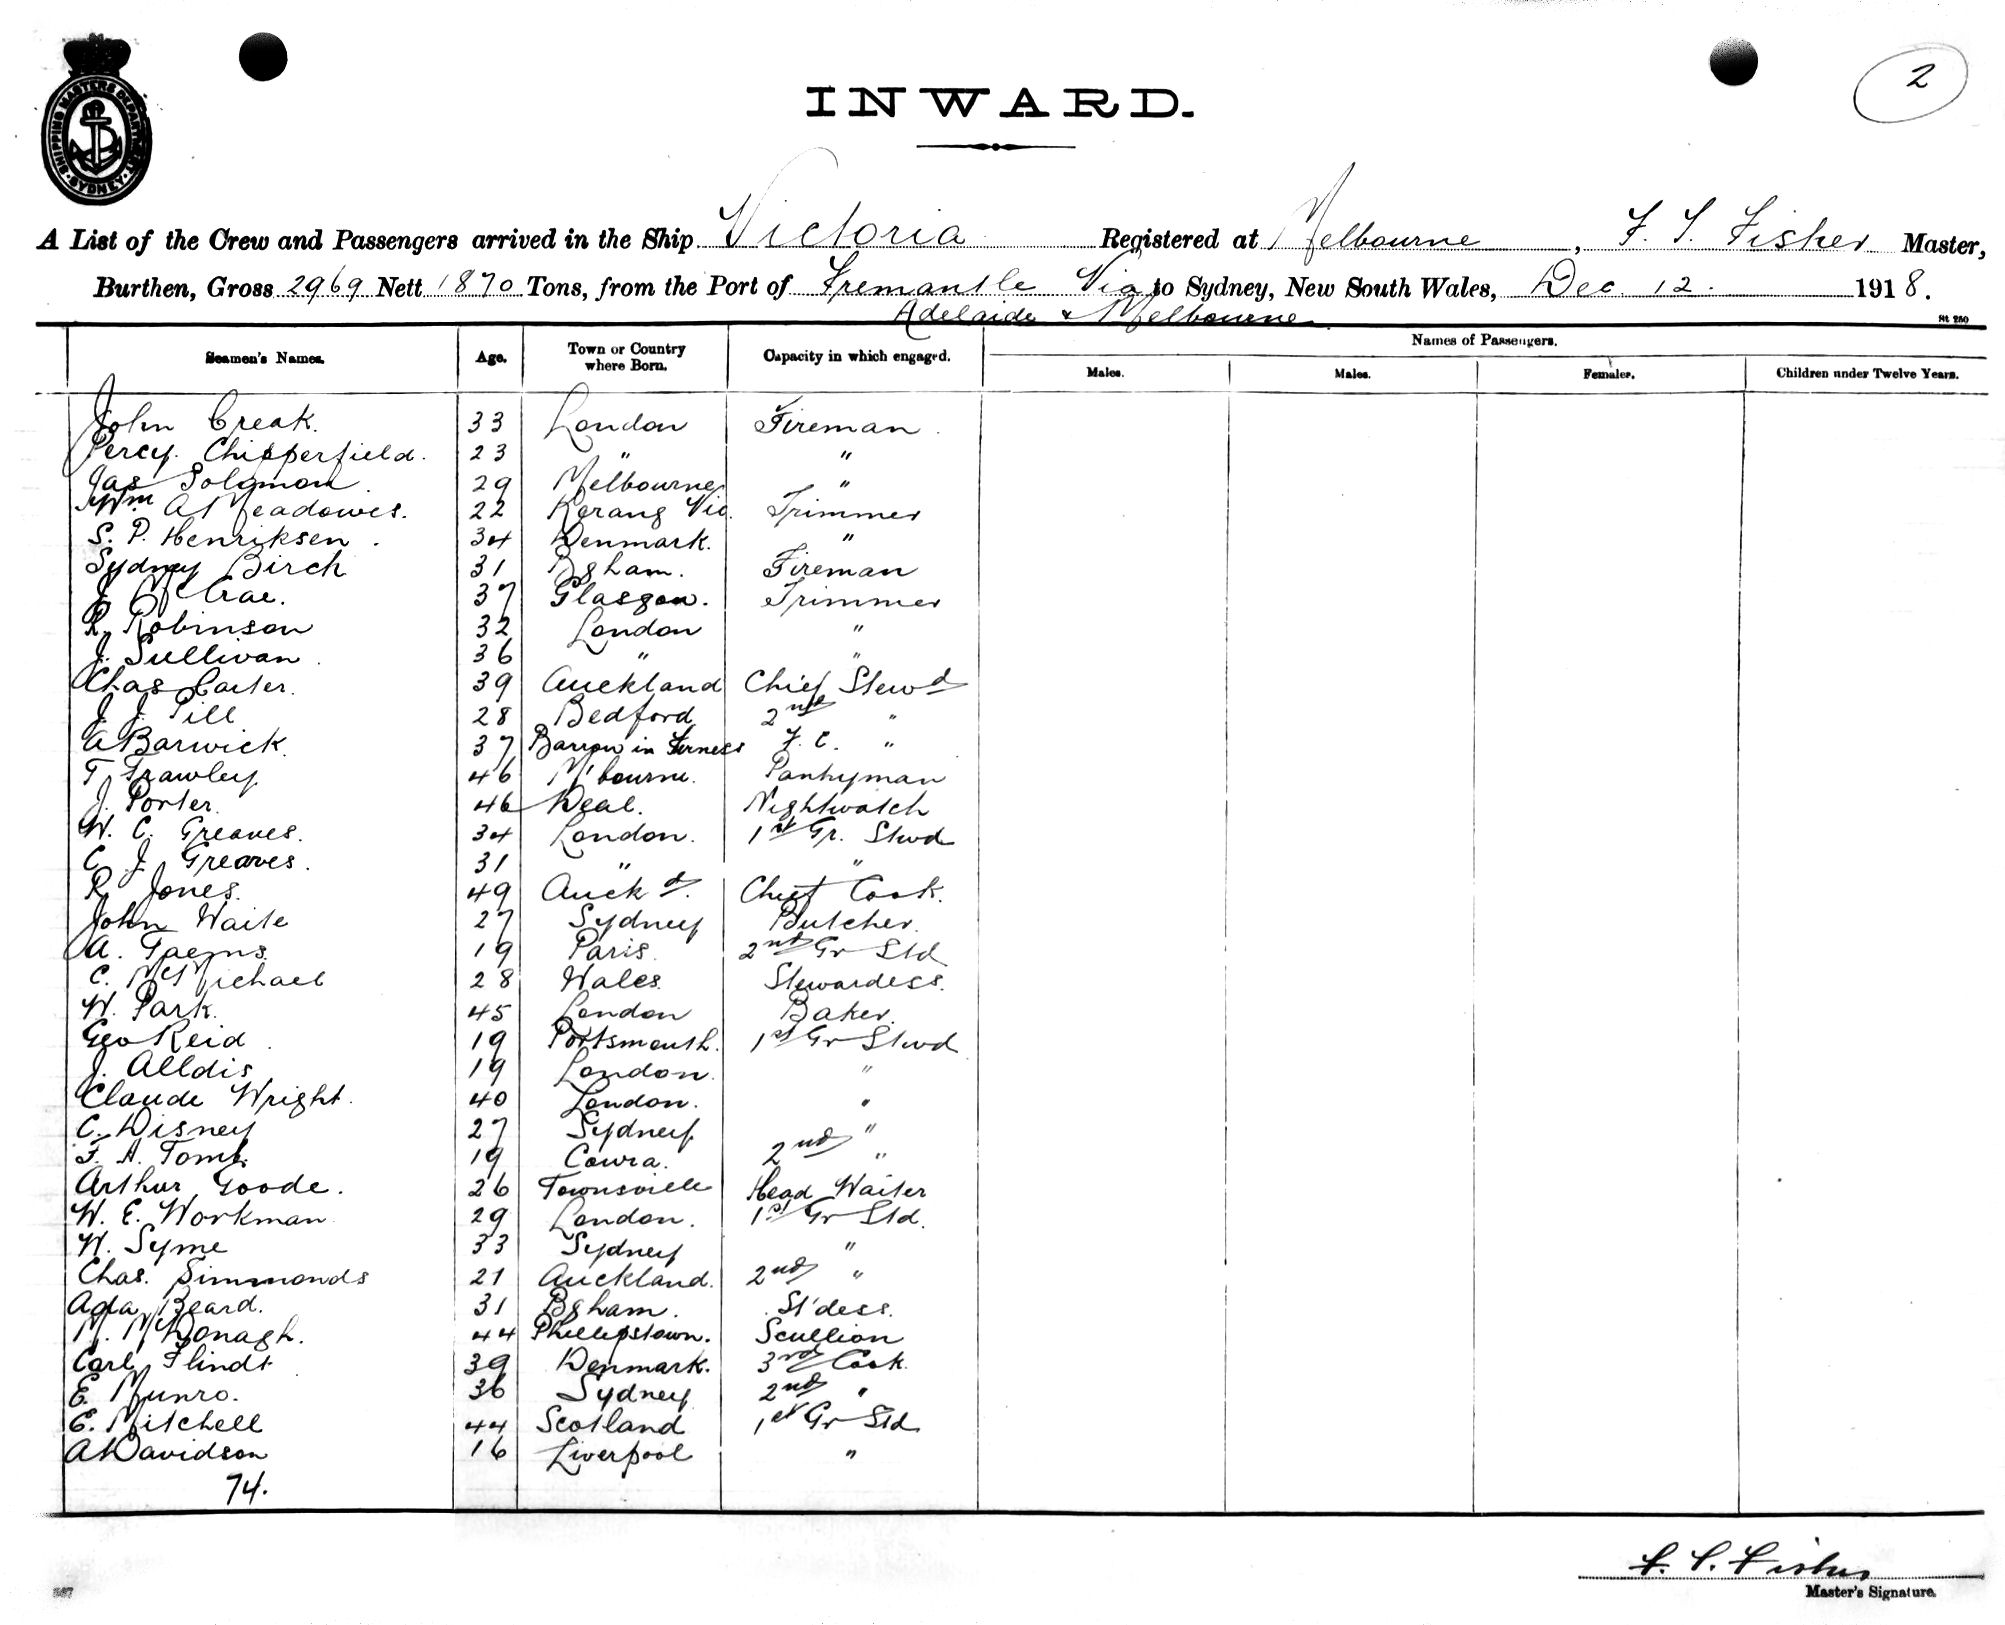 2
SHIPPING MASTERS DEPARTMENT SYDNEY
INWARD.
A List of the Crew and Passengers arrived in the Ship Victoria Registered at Melbourne, F. S. Fisher Master,
Burthen, Gross 2969 Nett 1870 Tons, from the Port of Fremantle Via to Sydney, New South Wales, Dec. 12. 1918.
Adelaide & Melbourne
St 250
Seamen's Names. Age. Town or Country where Born. Capacity in which engaged. Names of Passengers.
Males. Males. Females. Children under Twelve Years.
John Creak. 33 London Fireman.
Percy. Chipperfield. 23 " "
Jas Solomon. 29 Melbourne "
Wm A Meadowes. 22 Kerang Vic. Trimmer
S. P. Henriksen. 34 Denmark. "
Sydney Birch 31 Bgham. Fireman
J McCrae. 37 Glasgow. Trimmer
R. Robinson 32 London "
J. Sullivan. 36 " "
Chas Carter. 39 Auckland Chief Stewd
J. J. Pill 28 Bedford 2nd "
A Barwick. 37 Barrow in Furness F. C. "
T. Frawley 46 M'bourne. Pantryman
J. Porter. 46 Deal. Nightwatch
W. C. Greaves. 34 London. 1st Gr. Stwd
C J. Greaves. 31 " "
R Jones. 49 Auckd. Chief Cook.
John Waite 27 Sydney Butcher.
A. 19 Paris. 2nd Gr Std
C. McMichael 28 Wales. Stewardess.
W. Park. 45 London Baker.
Geo Reid. 19 Portsmouth. 1st Gr Stwd
J. Alldis 19 London. "
Claude Wright. 40 London. "
C. Disney 27 Sydney "
F. A. Tomb. 19 Cowra. 2nd "
Arthur Goode. 26 Townsville Head Waiter
W. E. Workman 29 London. 1st Gr Std.
W. Syme 33 Sydney "
Chas. Simmonds 21 Auckland. 2nd "
Ada Beard. 31 Bgham. St'dess.
M. McDonagh. 44 Phillipstown. Scullion
Carl Flindt 39 Denmark. 3rd Cook.
E. Munro. 36 Sydney 2nd "
E. Mitchell 44 Scotland 1st Gr Std
A Davidson 16 Liverpool "
74.
F. S. Fisher
Master's Signature.